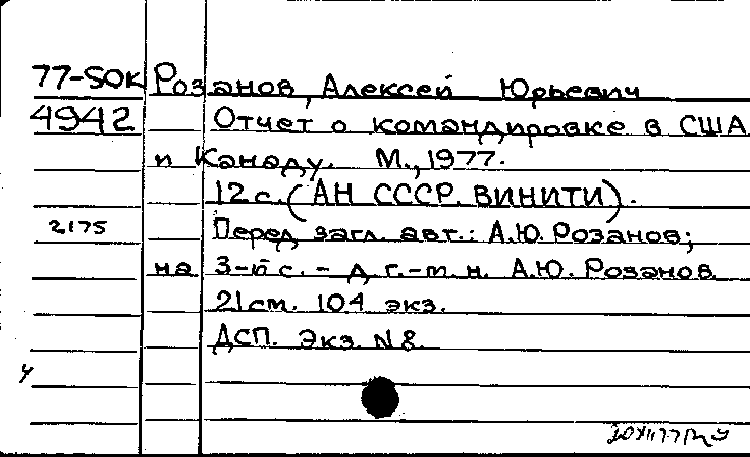 77-SOK Розанов, Алексей Юрьевич
4942 Отчет о командировке в США
и Канаду. М., 1977.
12 с. (АН СССР. ВИНИТИ).
2175 Перед загл. авт.: А.Ю. Розанов;
на 3-й с. - д. г.-м. н. А.Ю. Розанов
21 см. 104 экз.
ДСП. Экз. N 8.
у